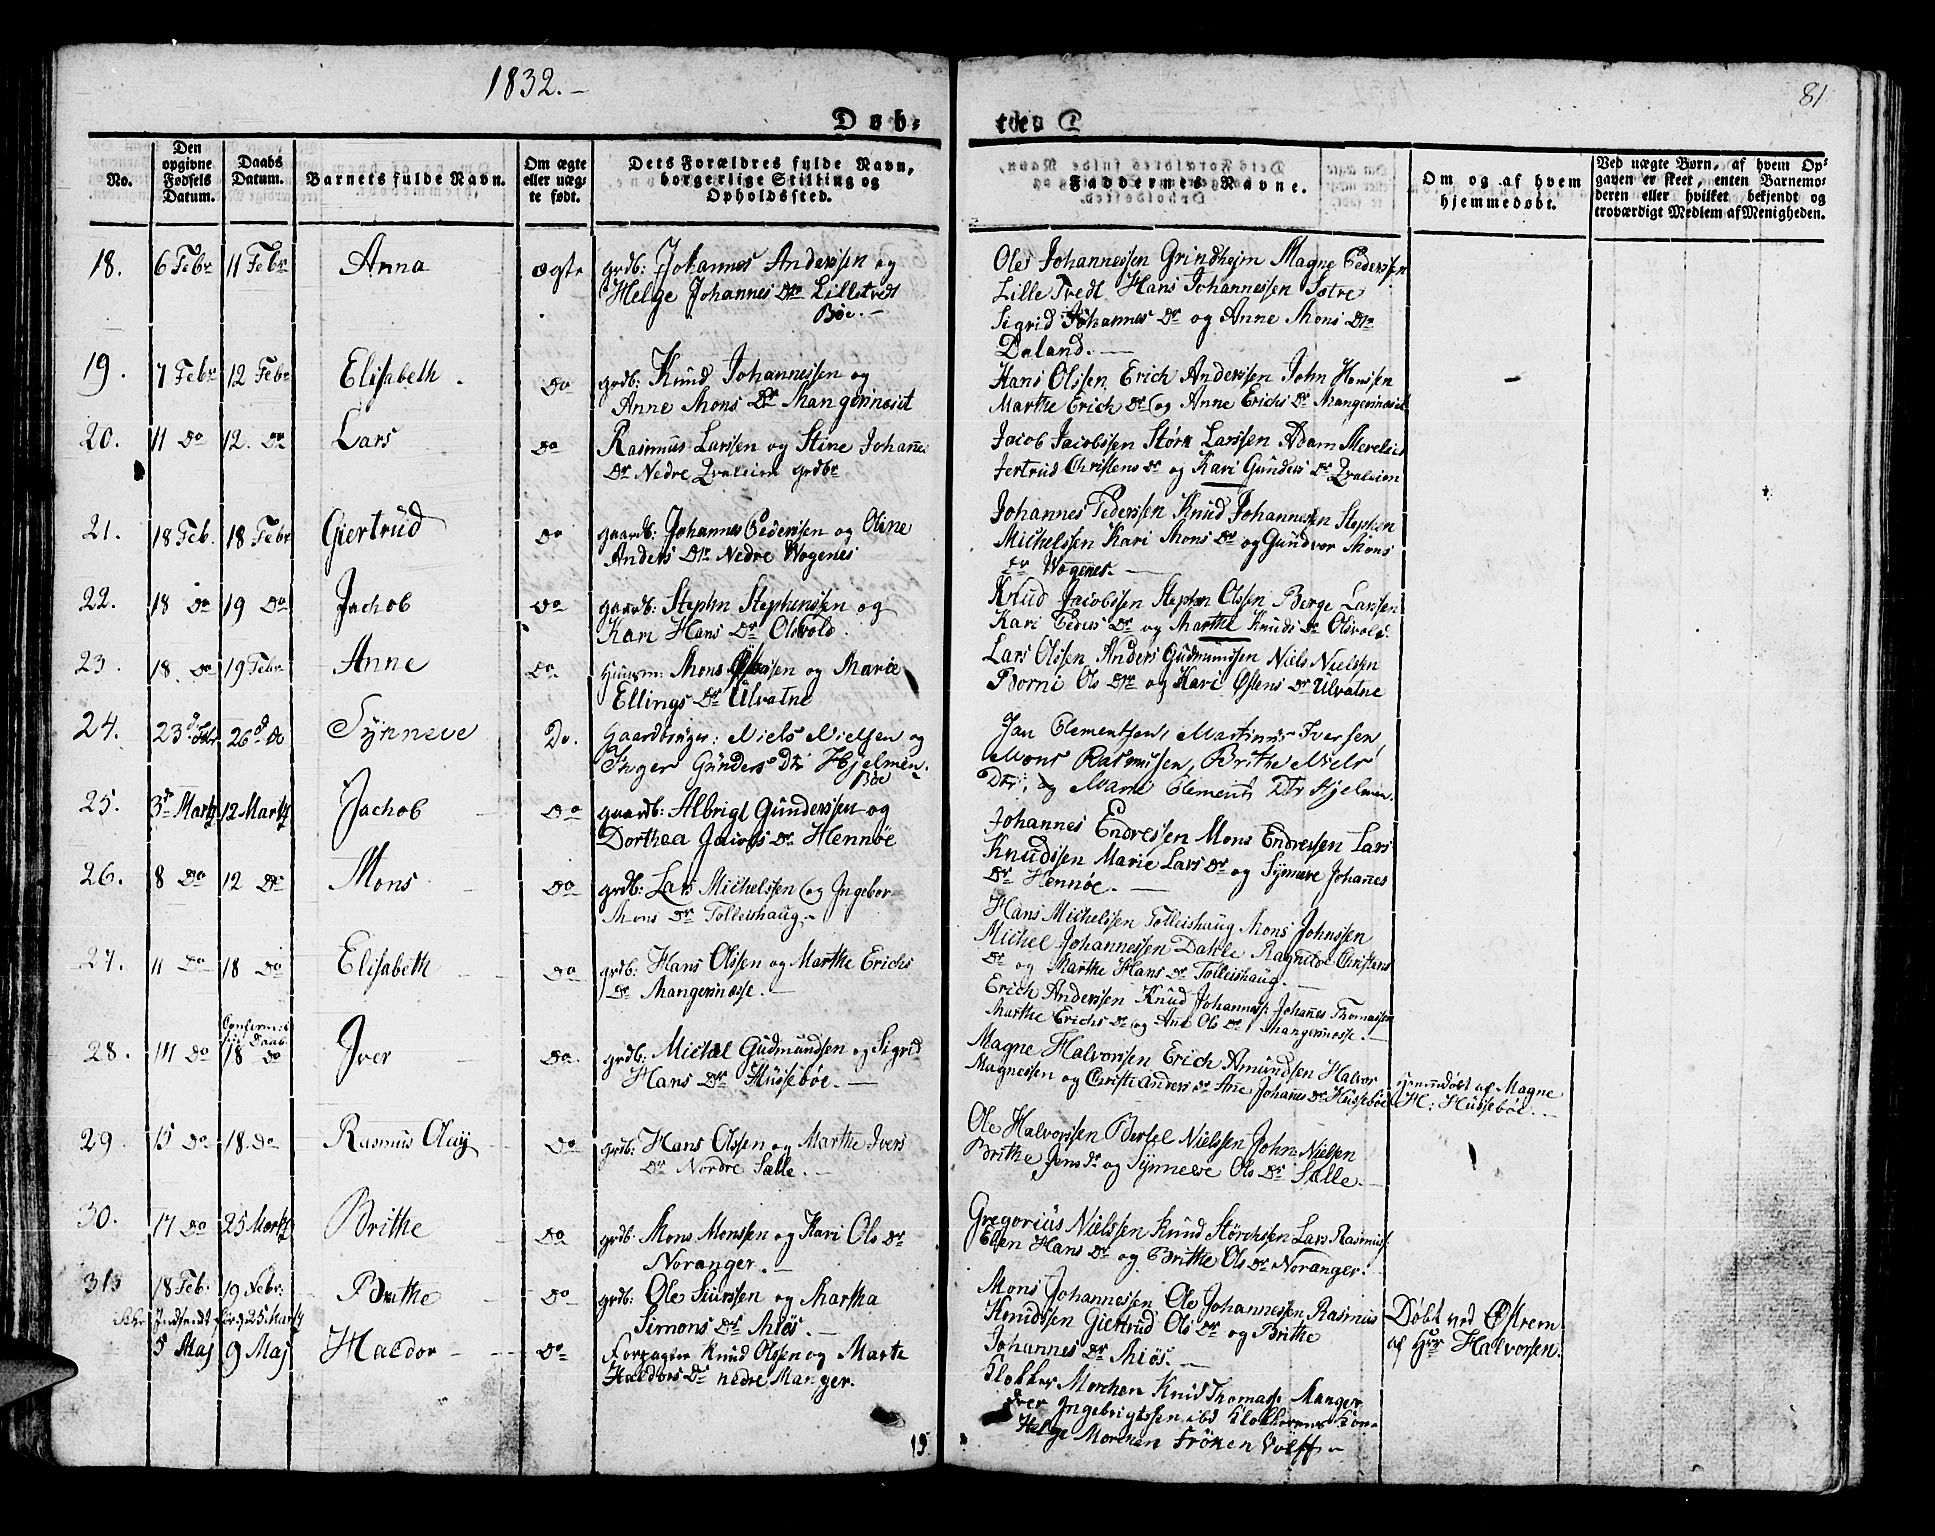 1832.-
81
Døb-
te.
No.
Den opgivne Fødsels Datum.
Daabs Datum.
Barnets fulde Navn.
Om ægte eller uægte født.
Dets Forældres fulde Navn, borgerlige Stilling og Opholdssted.
Faddernes Navne.
Om og af hvem hjemmedøbt.
Ved uægte Børn, af hvem Opgaven er skeet, enten Barnemoderen eller hvilket bekjendt og troværdigt Medlem af Menigheden.
18. 6 Febr 11 Febr Anna ægte grdb: Johannes Anderssen og
Helge Johannes Dtr Lilletvedt
Bøe.-
Ole Johannessen Grindheim Magne Pederssen
Lille Tvedt Hans Johannessen Istre
Sigrid Johannes Dr og Anne Mons Dtr
Daland.-
19. 7 Febr 12 Febr Elisabeth. Do grdb: Knud Johannessen og
Anne Mons Dr Mangernæset
Hans Olssen Erich Anderssen John Hanssen
Marthe Erich Dr og Anne Erichs Dr Mangernæset
20. 11 Do 12. Do Lars Do Rasmus Larssen og Stine Johannes
Dr Nedre Qvaleim grdbr
Jacob Jacobssen Størk Larssen Adam
Jertrud Christens Dr og Kari Gunders Dr Qvaleien
21. 18 Feb. 18 Febr Giertrud Do gaardb: Johannes Pederssen og Oline
Anders Dtr Nedre Wogenes
Johannes Pederssen Knud Johannessen Stephen
Michelssen Kari Mons Dr og Gundvor Mons
Dr Wogenes.-
22. 18 Do 19 Do Jachob Do gaardb: Stephn Stephenssen og
Kari Hans Dr Olsvold.
Knud Jacobssen Stephen Olssen Berge Larssen
Kari Peders Dr og Marthe Knuds Dr Olsvold.
23. 18 Do 19 Febr Anne Do. Huusm: Mons og Marie
Ellings Dr Ulvatne
Lars Olssen Anders Gudmundssen Niels Nielsen
Borni Ols Dtr og Kari Østens Dr Ulvatne
24. 23d Febr 26d Do Synneve Do. Gaardbruger: Niels Nielsen og
Inger Gunders Dtr Hjelmen.
Bøe
Jan Clementsen, Martinus Iversen,
Mons Rasmussen, Brithe Niels
Dtr, og Marie Clements Dtr Hjelmen.
25. 3d Martz 12 Martz Jachob Do gaardb: Albrigt Gunderssen og
Dorthea Jacobs Dr Hennøe
Johannes Endressen Mons Endressen Lars
Knudssen Marie Lars Dr og Synneve Johanes
Dr Hennøe.-
26. 8 Do 12 Do Mons Do grdb: Lars Michelssen og Ingebor
Mons Dr Tolleishaug.-
Hans Michelssen Tolleishaug Mons Johnssen
Michel Johannessen Dahle Ragnilde Christens
Dr og Marthe Hans Dr Tolleishaug.-
27. 11 Do 18 Do Elisabeth Do grdb: Hans Olssen og Marthe Erichs
Dr Mangernæsse.-
Erich Anderssen Knud Johanness: Johanes Thomassen
Marthe Erichs Dr og Ane Ols Dr Mangernesse.-
Confirm:
Daab
28. Do 18 Do Iver Do grdb: Michel Gudmundsen og Sigrid
Hans Dr Hüssebøe.-
Magne Halvorssen Erich Amundssen Halvor
Magnessen og Christi Anders Dr Ane Johanes Dr Hüssebøe
Hjemmdøbt af Magne
H: Hüssebøe.-
29. 15 Do 18. Do Rasmus Oluf Do grdb: Hans Olssen og Marthe Ivers
Dr Nordre Sælle.-
Ole Halvorssen Bertel Nielssen John Nielsen
Brithe Jens Dr og Synneve Ols Dr Sælle.-
30. 17 Do 25 Martz Brithe Do grdb: Mons Monssen og Kari Ols Dr
Noranger.-
Gregorius Nielssen Knud Størchsen Lars Rasmuss:
Elen Hans Dr og Brithe Ols Dr Noranger.
31 18 Feb. 19 Febr: Brithe Do grdb: Ole Siurssen og Martha
Simons Dr Miøs.-
Mons Johannessen Ole Johannessen, Rasmus
Knudssen Giertrud Ols Dr og Brithe
Johannes Dr Miøs.-
Døbt ved Østrem
af Hr Halvorsen.
Indsendt for d 25 Martz
5 Maj 9 Maj Haldor Do Forpagter Knud Olssen og Marte
Haldors Dr nedre Manger.
Klokker Morchen Knud Thomass: Manger
Iver Ingebrigtssen ibd Klokkerens Kone
Helge Morchen Frøken Wolff.-
19